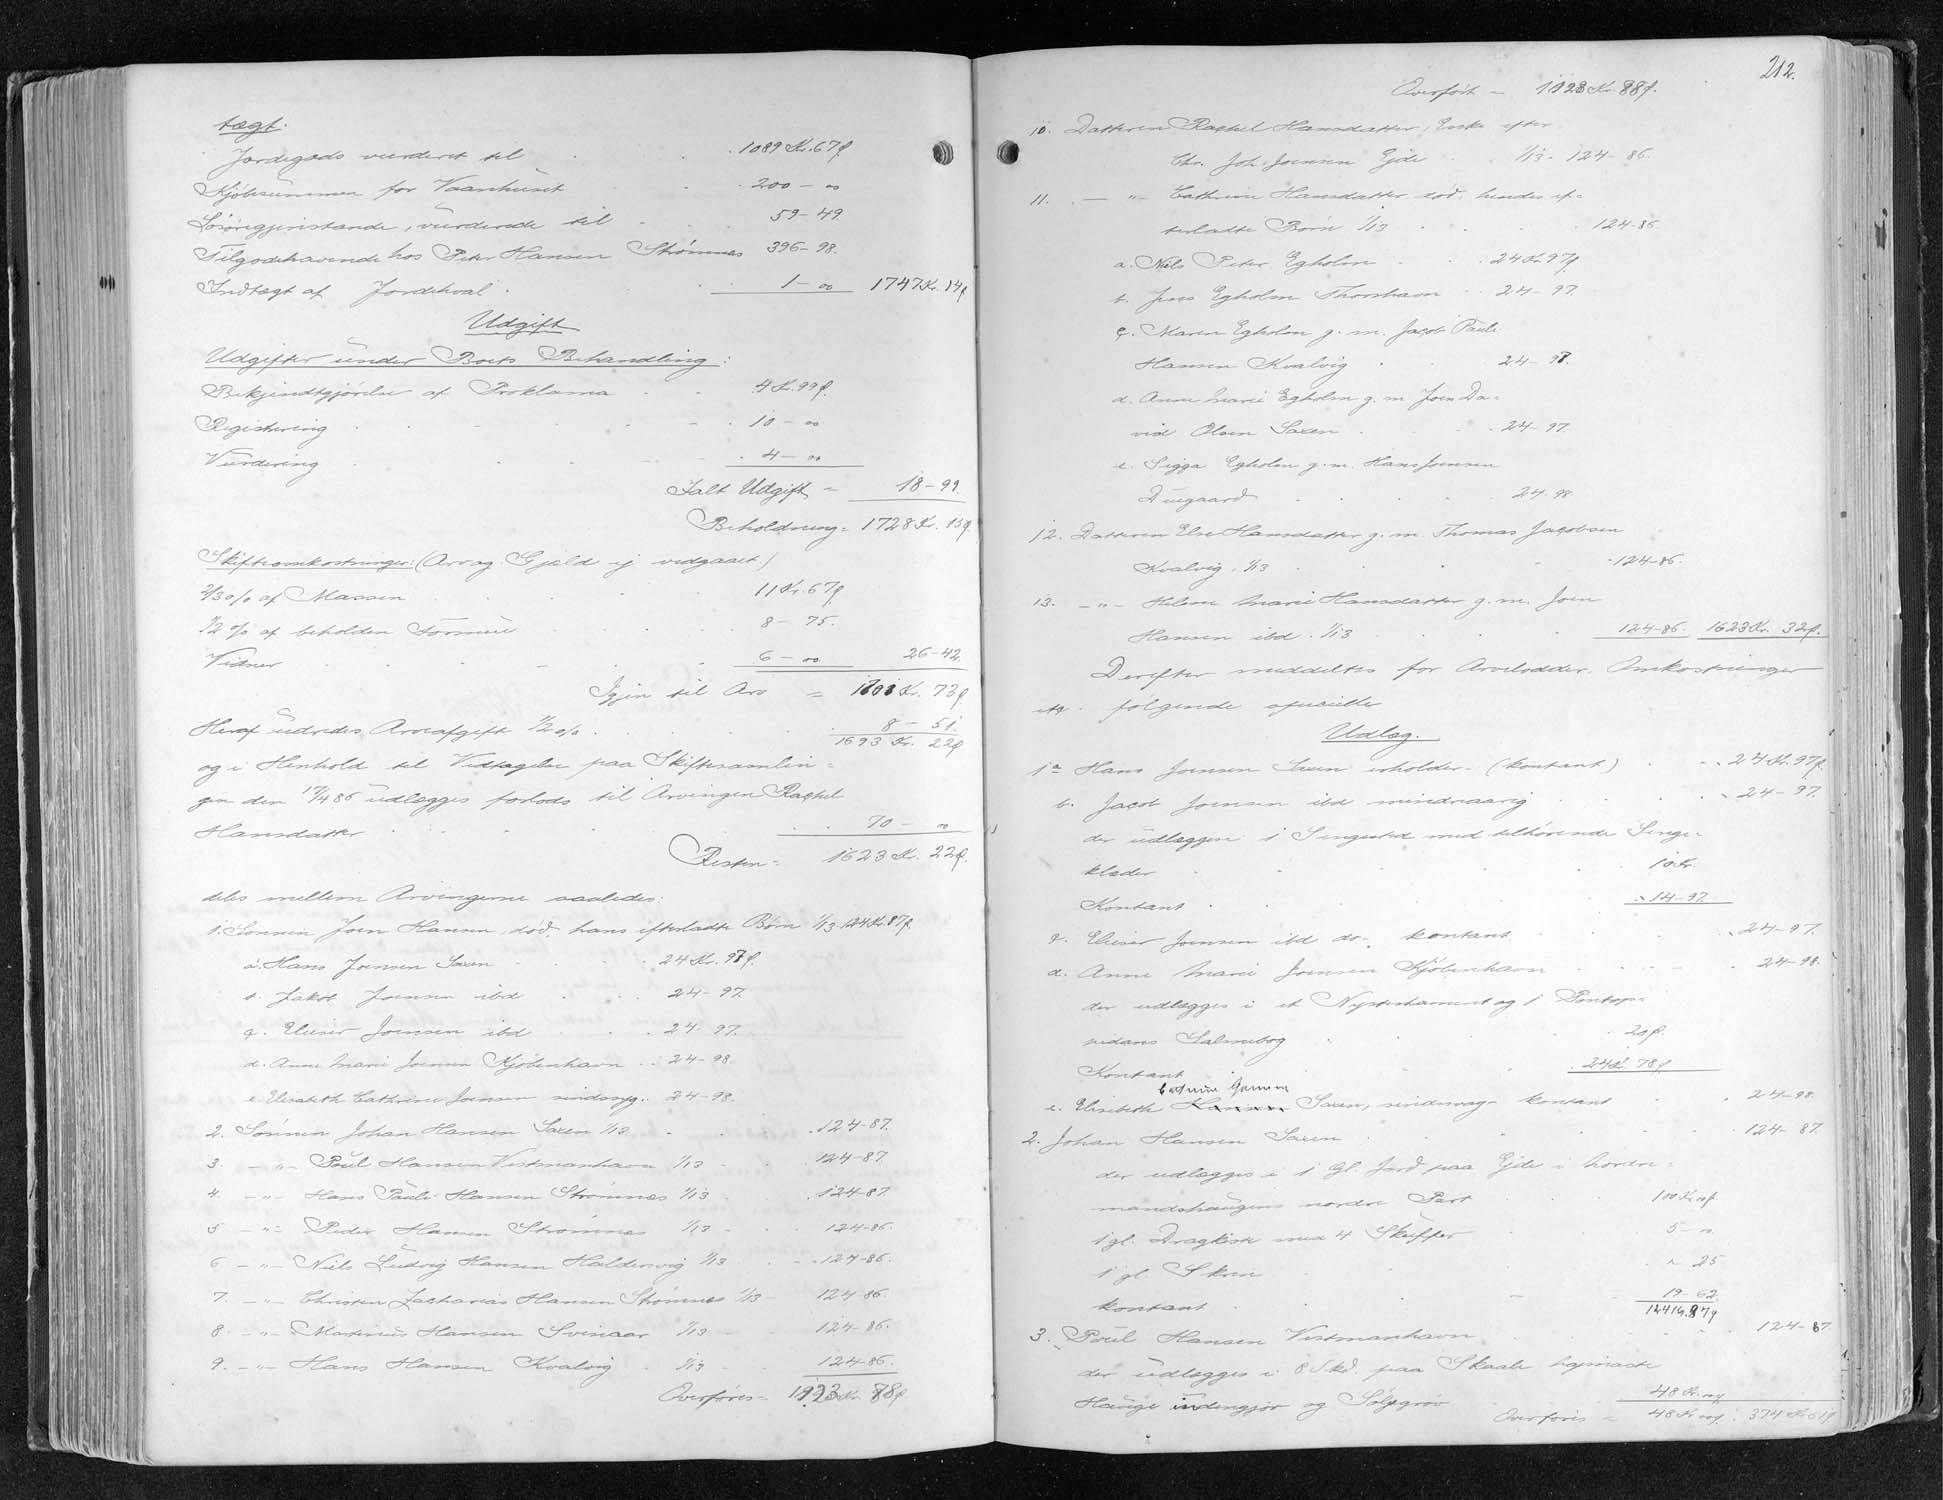 tægt.
Jordegods vurderet til 1089 Kr. 67 ø
Kjøbesummen for Vaanhuset 200 – 00
Løsøregjenstande, vurderede til 59 – 49.
Tilgodehavende hos Peter Hansen Strømnes 396 – 98.
Indtægt af Jordehval. 1 – 00 1747 Kr. 14 ø
Udgift
Udgifter under Boets Behandling:
Bekjendtgjørelse af Proklama 4 Kr. 99 ø.
Registrering 10 – 00
Vurdering 4 – 00
Ialt Udgift = 18 – 99.
Beholdning = 1728 Kr. 15 ø.
Skifteomkostninger: (Arv og Gjæld ej vedgaaet)
2/3 o/o af Massen 11 Kr. 67 ø
1/2 o/o af beholden Formue 8 – 75.
Vidner 6 – 00 26 – 42.
Igjen til Arv = 1701 Kr. 73 ø
Heraf udredes Arveafgift 1/2 o/o 8 – 51.
1693 Kr. 22 ø
og i Henhold til Vedtagelse paa Skiftesamlin=
gen den 17/4 86 udlægges forlods til Arvingen Rachel
Hansdatter 70 – 00
Resten = 1623 Kr. 22 ø.
deles mellem Arvingerne saaledes:
1. Sønnen Joen Hansen, død, hans efterladte Børn 1/13 124 Kr. 87 ø
a. Hans Joensen Saxen 24 Kr. 97 ø.
b. Jakob Joensen ibd 24 – 97.
c. Elieser Joensen ibd 24 – 97.
d. Anne Marie Joensen Kjøbenhavn 24 – 98
e. Elisabeth Cathrine Joensen sindssyg. 24 – 98.
2. Sønnen Johan Hansen Saxen 1/13 124 – 87.
3. – " – Poul Hansen Vestmanhavn 1/13 124 – 87
4. – " – Hans Pauli Hansen Strømnes 1/13 124 – 87.
5 – " – Peder Hansen Strømnes 1/13 124 – 86.
6 – " – Niels Ludvig Hansen Haldersvig 1/13 124 – 86.
7. – " – Christen Zacharias Hansen Strømnes 1/13 124 – 86.
8. – " – Martinus Hansen Svinaar 1/13 124 – 86.
9. – " – Hans Hansen Kvalvig 1/13 124 – 86.
Overføres = 1123 Kr. 88 ø
212.
Overført – 1123 Kr. 88 ø.
10. Datteren Rachel Hansdatter, Enke efter
Chr. Joh. Joensen Ejde 1/13 – 124 – 86.
11. – " – Cathrine Hansdatter død, hendes ef=
terladte Børn 1/13 124 – 86
a. Niels Peter Egholm 24 Kr. 97 ø
b. Jens Egholm Thorshavn 24 – 97.
c. Maren Egholm g. m. Jacob Pauli
Hansen Kvalvig 24 – 97.
d. Anne Marie Egholm g. m. Joen Da=
vid Olsen Saxen 24 – 97.
e. Sigga Egholm g. m. Hans Joensen
Duegaard 24 – 98.
12. Datteren Else Hansdatter g. m. Thomas Jacobsen
Kvalvig. 1/13 124 – 86.
13. – " – Helene Marie Hansdatter g. m. Joen
Hansen ibd. 1/13 124 – 86. 1623 Kr. 22 ø.
Derefter meddeltes for Arvelodder, Omkostninger
etc. følgende specielle
Udlæg.
1 a Hans Joensen Saxen erholder – (kontant) 24 Kr. 97 ø.
b. Jacob Joensen ibd mindreaarig 24 – 97.
der udlægges i 1 Sengested med tilhørende Senge=
klæder 10 Kr.
Kontant 14 – 97
c. Elieser Joensen ibd do. kontant 24 – 97.
d. Anne Marie Joensen Kjøbenhavn 24 – 98.
der udlægges i et Nytestament og 1 Pontop=
pidans Salmebog 20 ø.
Kontant 24 Kr. 78 ø
e. Elisabeth Hansen Saxen, sindssvag – kontant 24 – 98.
2. Johan Hansen Saxen 124 – 87.
der udlægges i 1 Gl. Jord paa Ejde i Nordre=
mandshaugens nordre Part 100 Kr. 00 ø
1 gl. Dragkiste med 4 Skuffer 5 – 00
1 gl. Skrin " 25
kontant 19 – 62.
124 Kr. 87 ø
3. Poul Hansen Vestmanhavn 124 – 87.
der udlægges i 8 Skd. paa Skaale
Hauge indengjør og
48 Kr. 00 ø
Overføres = 48 Kr 00 ø 374 Kr. 61 ø